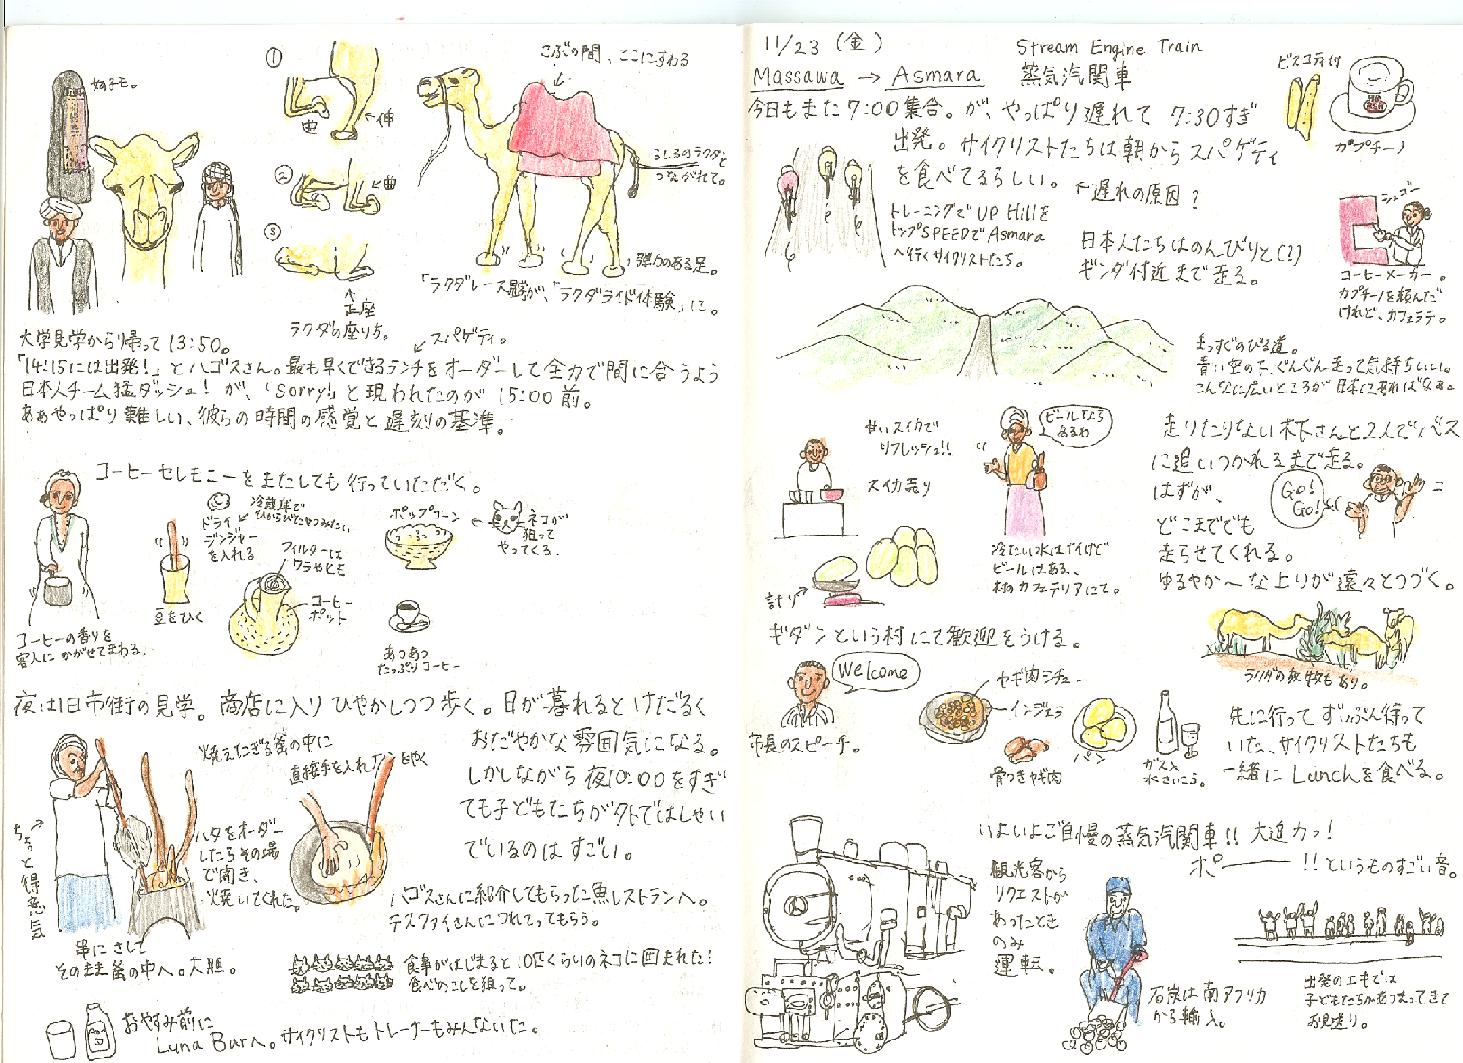 帽子も。
① 曲 伸
② 曲
③
正座
ラクダの座り方。
こぶの間、ここにすわる
うしろのラクダと
つながれて。
弾力のある足。
「ラクダレース観戦」が、「ラクダライド体験」に。
大学見学から帰って 13:50。
スパゲティ。
「14:15には出発！」とハゴスさん。最も早くできるランチをオーダーして全力で間に合うよう
日本人チーム猛ダッシュ！ が、「Sorry!」と現われたのが 15:00前。
あぁやっぱり難しい、彼らの時間の感覚と遅刻の基準。
コーヒーセレモニーをまたしても行っていただく。
コーヒーの香りを
客人にかがせてまわる。
豆をひく
ドライ
ジンジャー
を入れる
フィルターは
ワラやヒモ
コーヒー
ポット
ポップコーン
ネコが
狙って
やってくる。
あつあつ
たっぷりコーヒー
夜は旧市街の見学。商店に入りひやかしつつ歩く。日が暮れるとけだるく
おだやかな雰囲気になる。
しかしながら夜10:00をすぎ
ても子どもたちが外ではしゃい
でいるのはすごい。
燃えたぎる釜の中に
直接手を入れナンをやく
ちょっと得意気
ハタをオーダー
したらその場
で開き、
焼いてくれた。
串にさして
そのまま釜の中へ。大胆。
ハゴスさんに紹介してもらった魚レストランへ。
テスファイさんにつれてってもらう。
食事がはじまると10匹くらいのネコに囲まれた！
食べのこしを狙って。
おやすみ前に
Luna Barへ。サイクリストもトレーナーもみんないた。
11/23 (金)
Stream Engine Train
Massawa → Asmara 蒸気汽関車
今日もまた 7:00集合。が、やっぱり遅れて 7:30すぎ
出発。サイクリストたちは朝からスパゲティ
を食べてるらしい。 ←遅れの原因？
トレーニングで UP Hillを
トップSPEEDで Asmara
へ行くサイクリストたち。
日本人たちはのんびりと(?)
ギンダ付近まで走る。
ビスコティ付
カプチーノ
シュゴー
コーヒーメーカー。
カプチーノを頼んだ
けれど、カフェラテ。
まっすぐのびる道。
青い空の下、ぐんぐん走って気持ちいい。
こんなに広いところが日本にあればなぁ。
甘いスイカで
リフレッシュ!!
スイカ売り
計り
ビールなら
あるわ
冷たい水はないけど
ビールはある、
村のカフェテリアにて。
走りたりない木下さんと2人でバス
に追いつかれるまで走る。
はずが、
どこまででも
走らせてくれる。
ゆるやか〜な上りが遠々とつづく。
Go!
Go!
ラクダの放牧もあり。
ギダンという村にて歓迎をうける。
Welcome
市長のスピーチ。
ヤギ肉シチュー
インジェラ
骨つきヤギ肉
パン
ガス入
水さいこう。
先に行ってずいぶん待って
いた、サイクリストたちも
一緒に Lunchを食べる。
いよいよご自慢の蒸気汽関車!! 大迫力っ！
ポーーー!! というものすごい音。
観光客から
リクエストが
あったとき
のみ
運転。
石炭は南アフリカ
から輸入。
子どもたちがあつまってきて
お見送り。